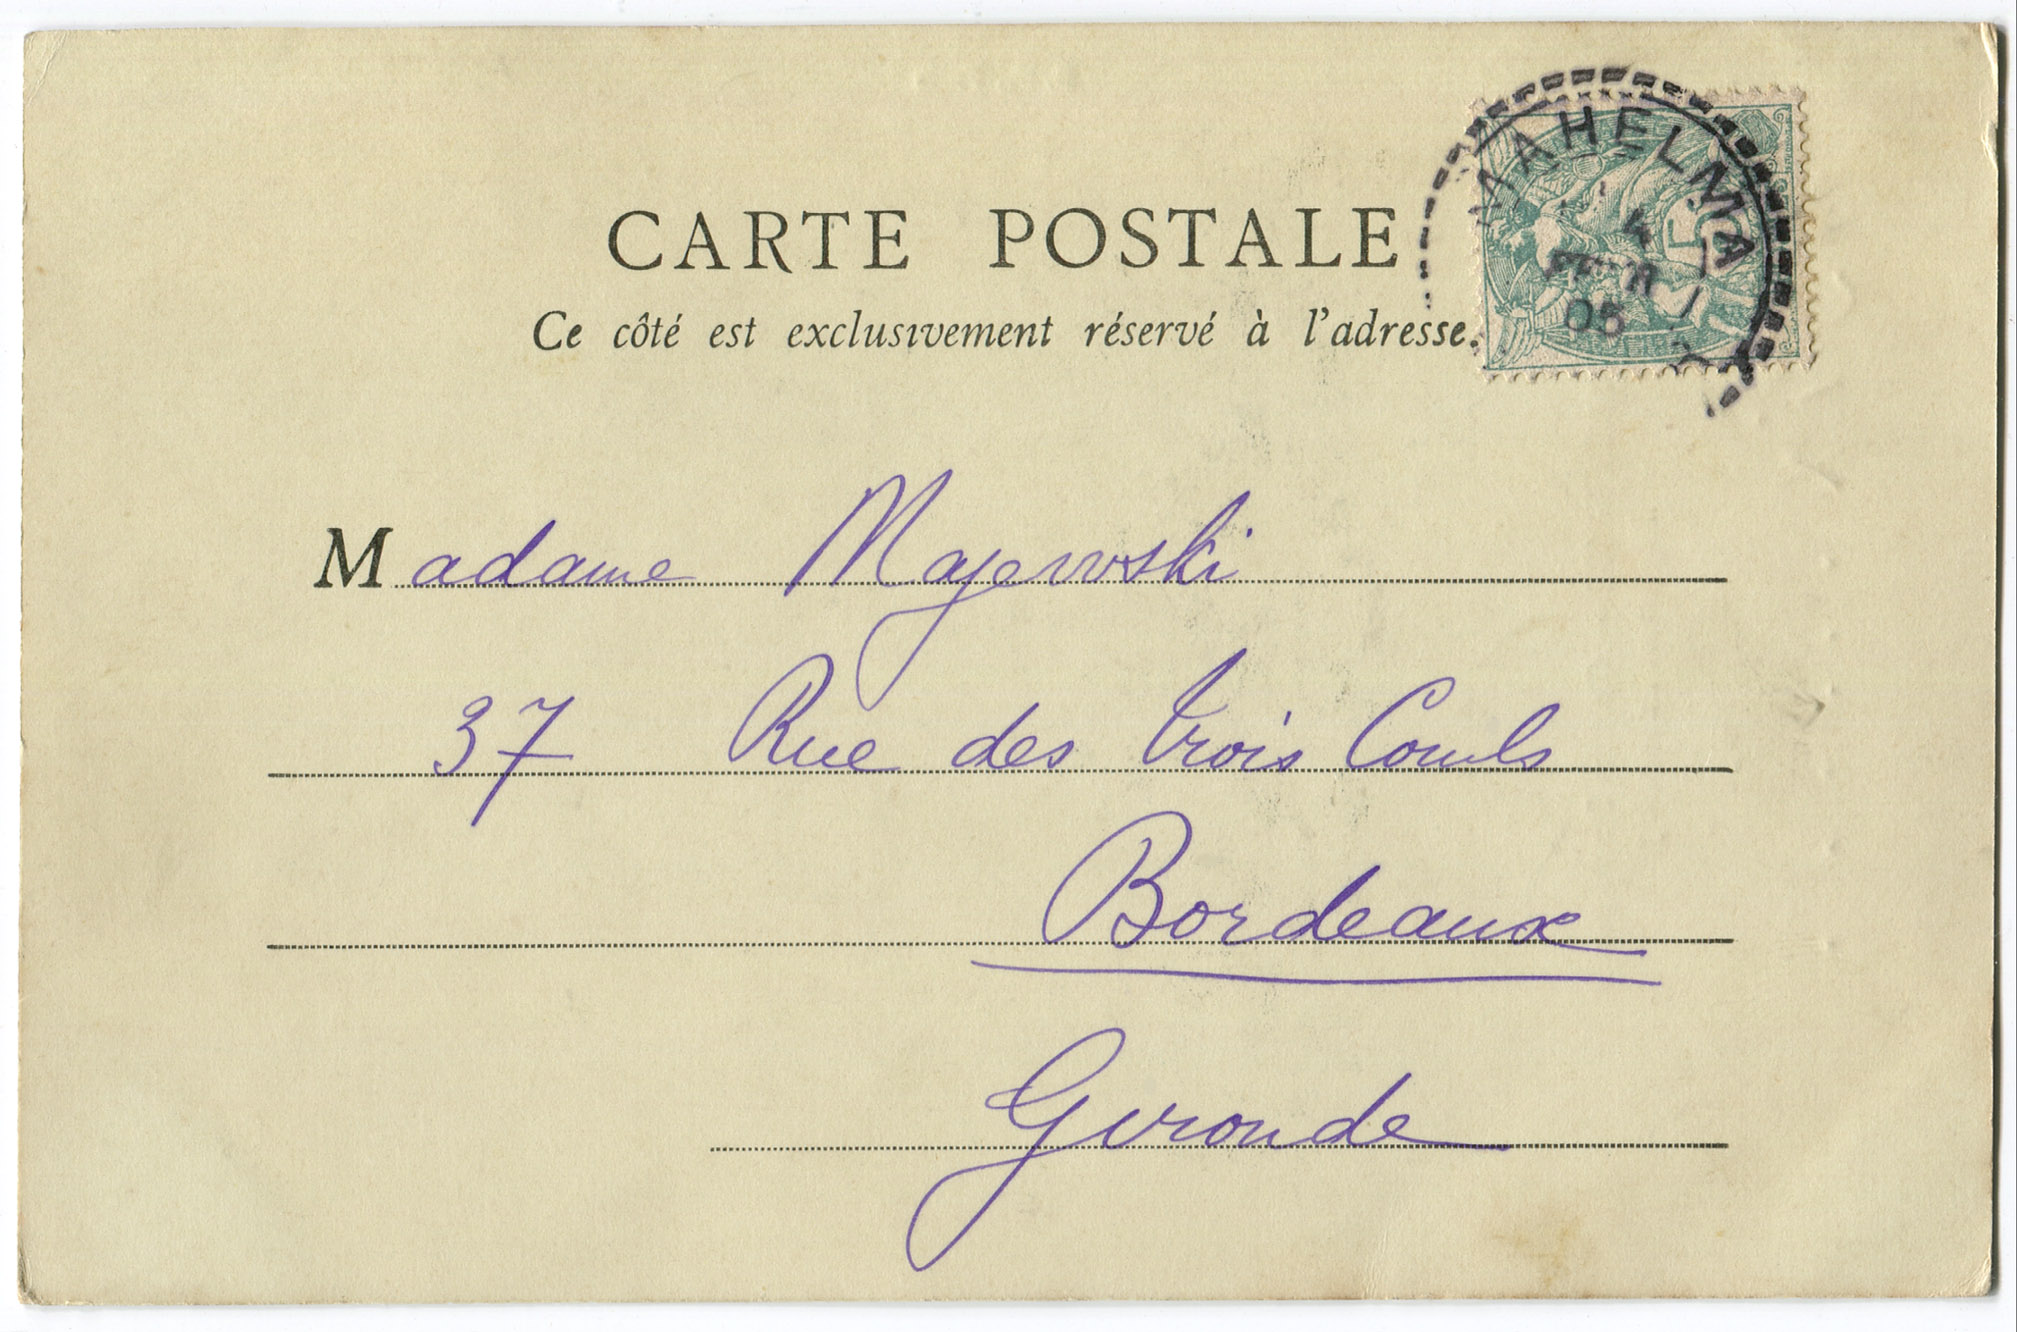 CARTE POSTALE
Ce côté est exclusivement réservé à l'adresse.
MAHELMA
4
FEVR
05
Madame Majewski
37 Rue des trois Conils
Bordeaux
Gironde